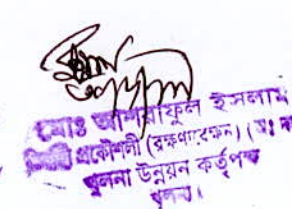 মোঃ আশরাফুল ইসলাম
প্রকৌশলী (রক্ষণাবেক্ষন) (অঃ দাঃ
খুলনা উন্নয়ন কর্তৃপক্ষ
খুলনা।